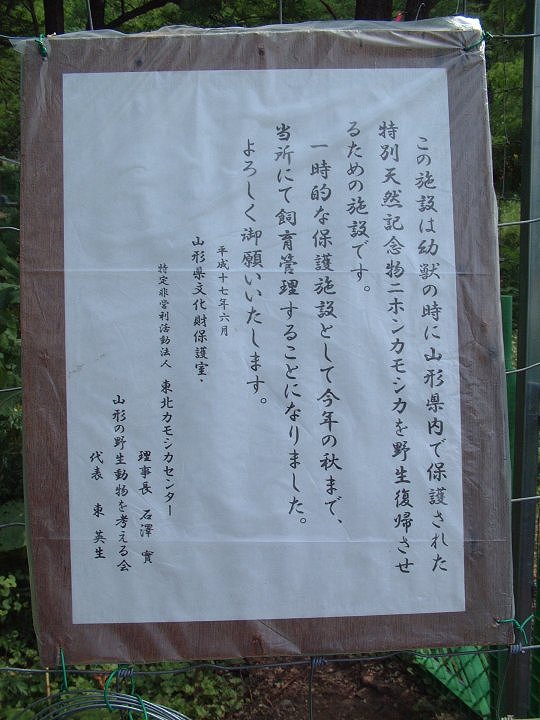 この施設は幼獣の時に山形県内で保護された
特別天然記念物ニホンカモシカを野生復帰させ
るための施設です。
一時的な保護施設として今年の秋まで、
当所にて飼育管理することになりました。
よろしく御願いいたします。
平成十七年六月
山形県文化財保護室・
特定非営利活動法人 東北カモシカセンター
理事長 石澤 實
山形の野生動物を考える会
代表 東 英生